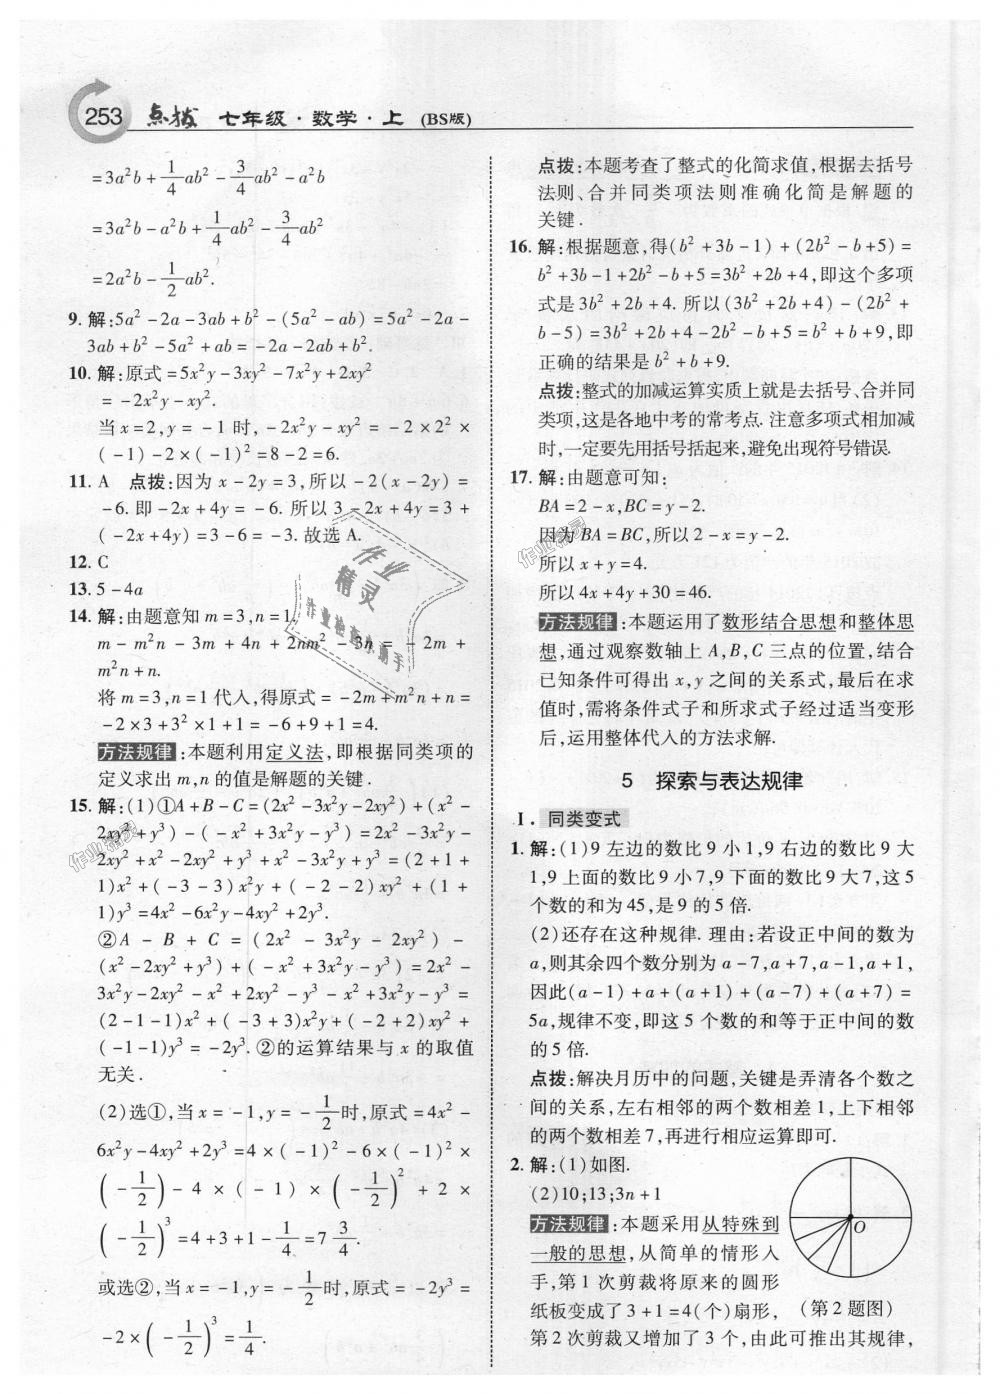 253 点拨 七年级·数学·上 (BS版)
=3a²b+1/4ab²-3/4ab²-a²b
=3a²b-a²b+1/4ab²-3/4ab²
=2a²b-1/2ab².
9. 解:5a²-2a-3ab+b²-(5a²-ab)=5a²-2a-
3ab+b²-5a²+ab=-2a-2ab+b².
10. 解:原式=5x²y-3xy²-7x²y+2xy²
=-2x²y-xy².
当x=2,y=-1时,-2x²y-xy²=-2×2²×
(-1)-2×(-1)²=8-2=6.
11. A 点拨:因为x-2y=3,所以-2(x-2y)=
-6.即-2x+4y=-6.所以3-2x+4y=3+
(-2x+4y)=3-6=-3.故选A.
12. C
13. 5-4a
14. 解:由题意知m=3,n=1.
m-m²n-3m+4n+2nm²-3n=-2m+
m²n+n.
将m=3,n=1代入,得原式=-2m+m²n+n=
-2×3+3²×1+1=-6+9+1=4.
方法规律:本题利用定义法,即根据同类项的
定义求出m,n的值是解题的关键.
15. 解:(1)①A+B-C=(2x²-3x²y-2xy²)+(x²-
2xy²+y³)-(-x²+3x²y-y³)=2x²-3x²y-
2xy²+x²-2xy²+y³+x²-3x²y+y³=(2+1+
1)x²+(-3-3)x²y+(-2-2)xy²+(1+
1)y³=4x²-6x²y-4xy²+2y³.
②A-B+C=(2x²-3x²y-2xy²)-
(x²-2xy²+y³)+(-x²+3x²y-y³)=2x²-
3x²y-2xy²-x²+2xy²-y³-x²+3x²y-y³=
(2-1-1)x²+(-3+3)x²y+(-2+2)xy²+
(-1-1)y³=-2y³.②的运算结果与x的取值
无关.
(2)选①,当x=-1,y=-1/2时,原式=4x²-
6x²y-4xy²+2y³=4×(-1)²-6×(-1)²×
(-1/2)-4×(-1)×(-1/2)²+2×
(-1/2)³=4+3+1-1/4=7 3/4.
或选②,当x=-1,y=-1/2时,原式=-2y³=
-2×(-1/2)³=1/4.
点拨:本题考查了整式的化简求值,根据去括号
法则、合并同类项法则准确化简是解题的
关键.
16. 解:根据题意,得(b²+3b-1)+(2b²-b+5)=
b²+3b-1+2b²-b+5=3b²+2b+4,即这个多项
式是3b²+2b+4.所以(3b²+2b+4)-(2b²+
b-5)=3b²+2b+4-2b²-b+5=b²+b+9,即
正确的结果是b²+b+9.
点拨:整式的加减运算实质上就是去括号、合并同
类项,这是各地中考的常考点.注意多项式相加减
时,一定要先用括号括起来,避免出现符号错误.
17. 解:由题意可知:
BA=2-x,BC=y-2.
因为BA=BC,所以2-x=y-2.
所以x+y=4.
所以4x+4y+30=46.
方法规律:本题运用了数形结合思想和整体思
想,通过观察数轴上A,B,C三点的位置,结合
已知条件可得出x,y之间的关系式,最后在求
值时,需将条件式子和所求式子经过适当变形
后,运用整体代入的方法求解.
5 探索与表达规律
Ⅰ.同类变式
1. 解:(1)9左边的数比9小1,9右边的数比9大
1,9上面的数比9小7,9下面的数比9大7,这5
个数的和为45,是9的5倍.
(2)还存在这种规律.理由:若设正中间的数为
a,则其余四个数分别为a-7,a+7,a-1,a+1,
因此(a-1)+a+(a+1)+(a-7)+(a+7)=
5a,规律不变,即这5个数的和等于正中间的数
的5倍.
点拨:解决月历中的问题,关键是弄清各个数之
间的关系,左右相邻的两个数相差1,上下相邻
的两个数相差7,再进行相应运算即可.
2. 解:(1)如图.
(2)10;13;3n+1
方法规律:本题采用从特殊到
一般的思想,从简单的情形入
手,第1次剪裁将原来的圆形
纸板变成了3+1=4(个)扇形,
第2次剪裁又增加了3个,由此可推出其规律,
O
(第2题图)
作业精灵
作业检查小帮手
作业精灵
作业精灵